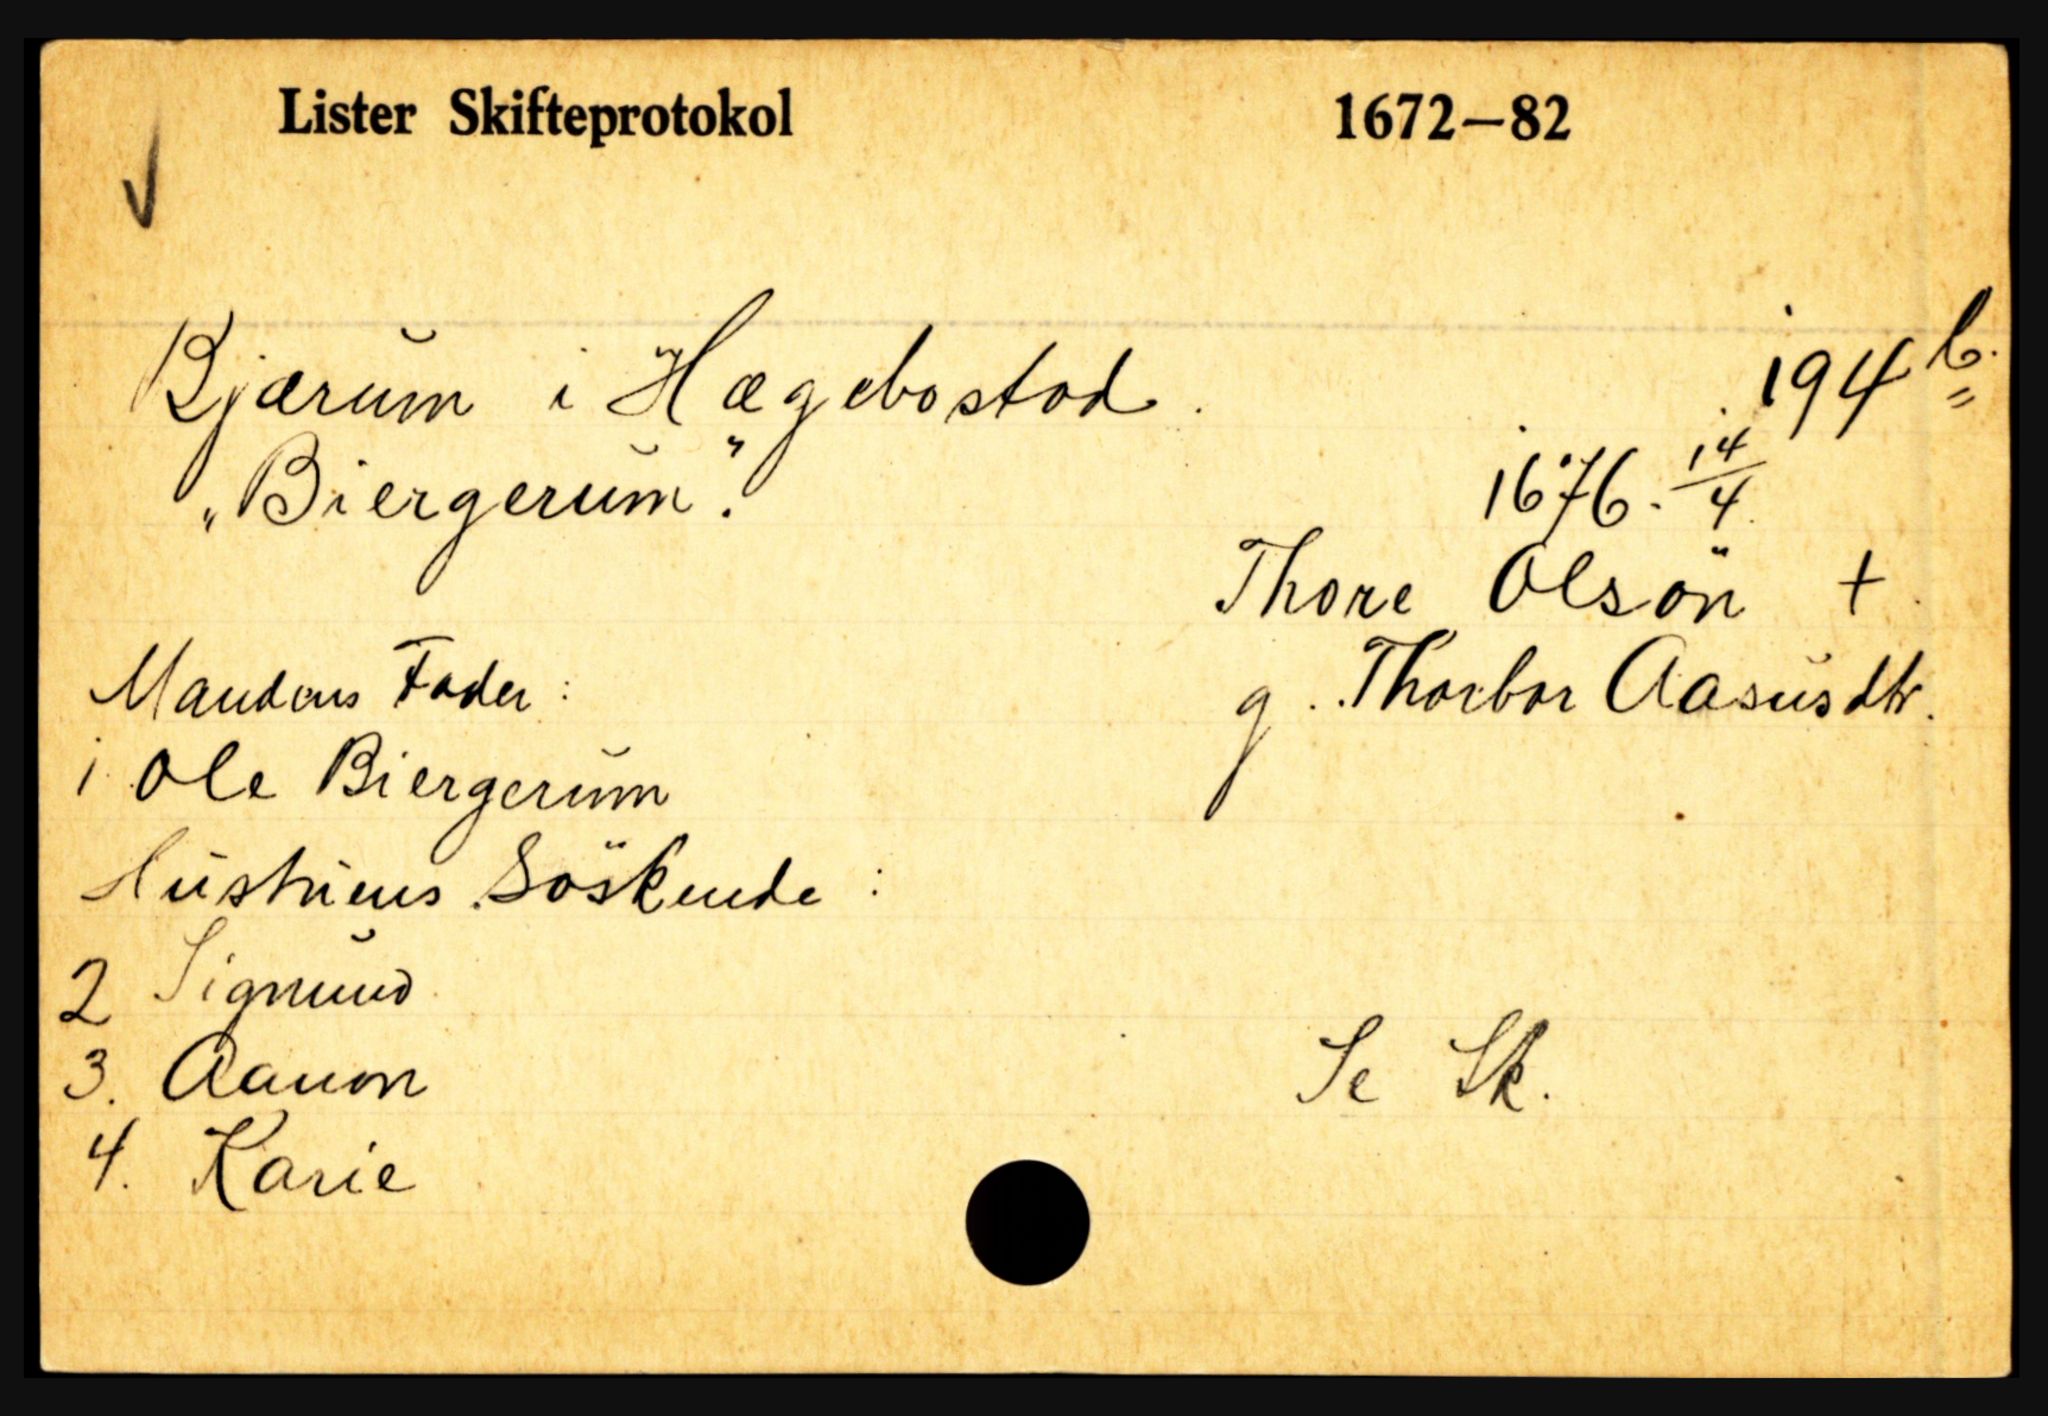 Lister Skifteprotokol 1672—82
Bjærum i Hægebostad. 194 b.
„Biergerum".
1676. 14/4
Thore Olsön +
g. Thorbor Aasusdtr.
Mandens Fader:
1 Ole Biergerum
Hustruens Söskende:
2 Sigmund
3. Aanon
4. Karie
Se Sk.